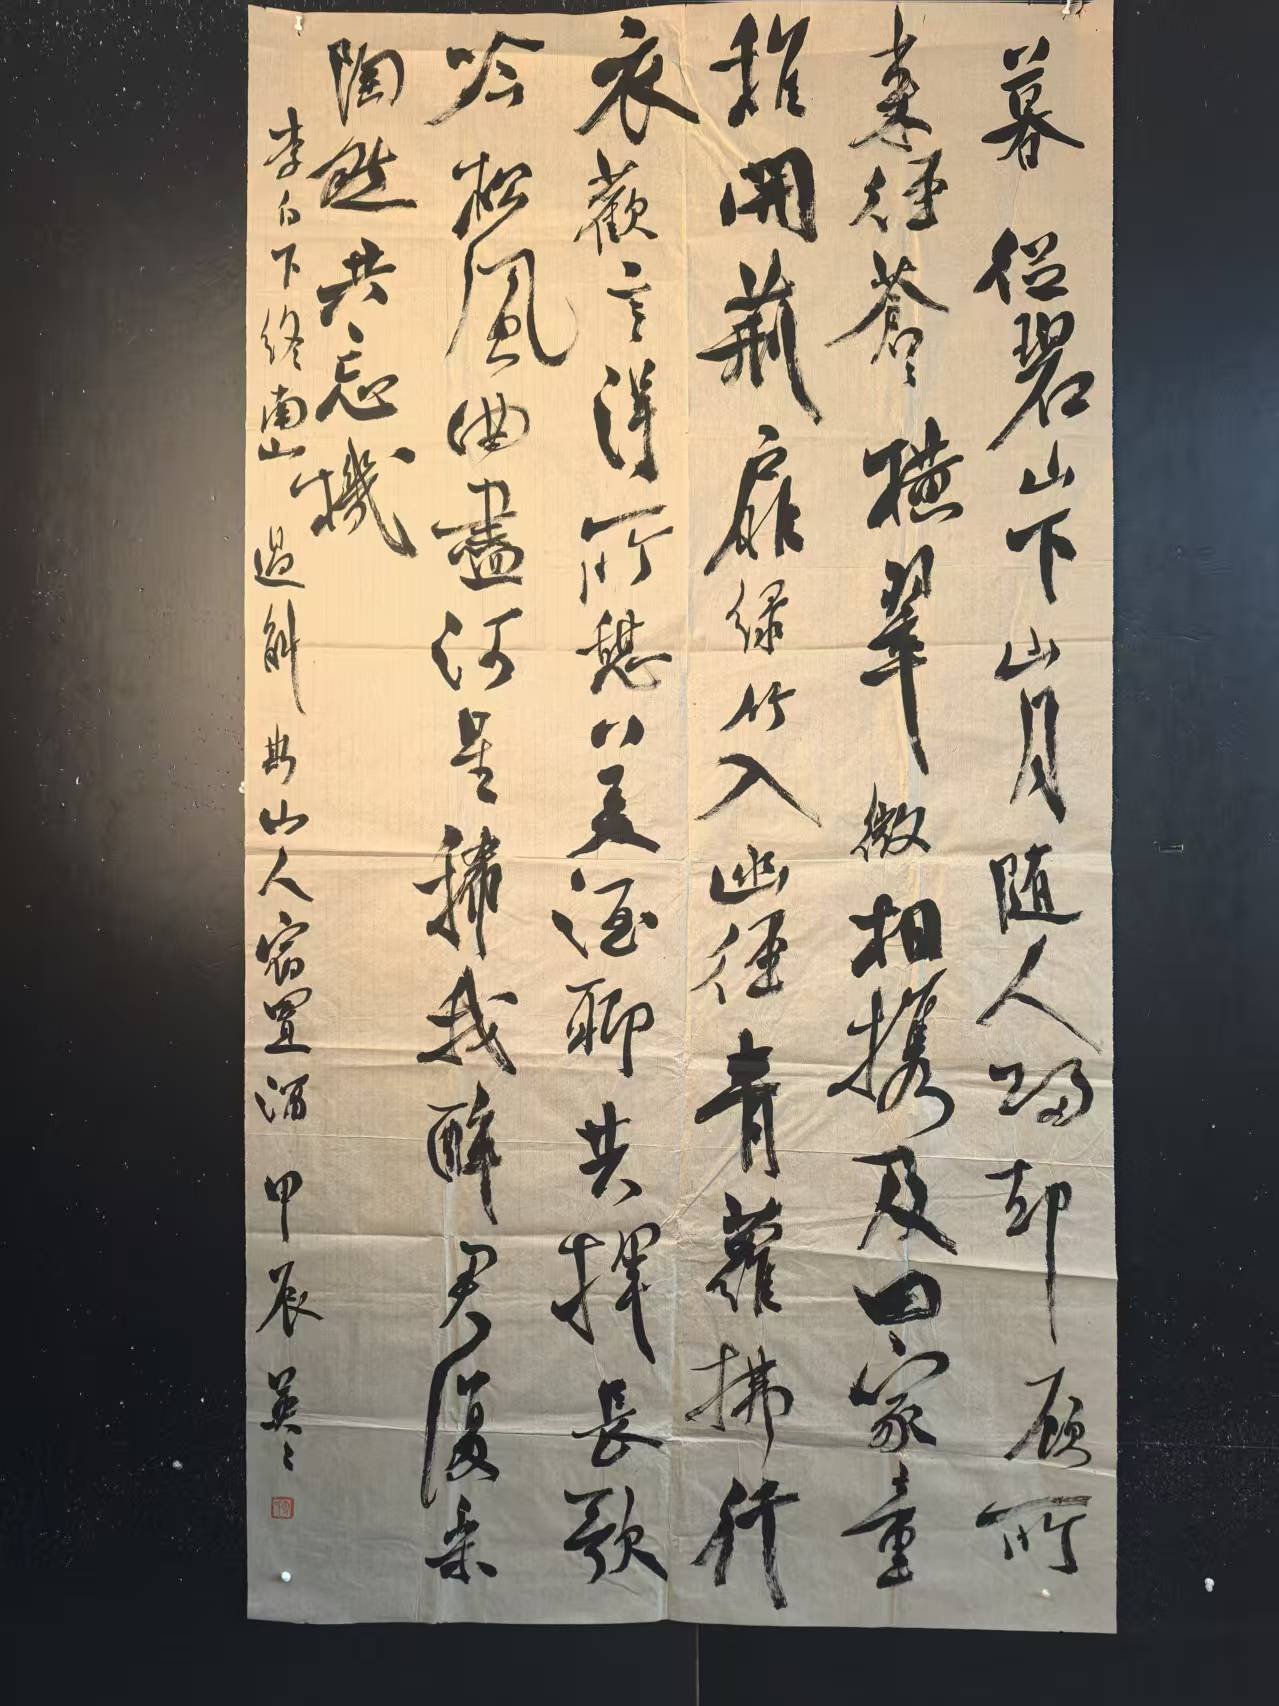 暮從碧山下山月随人歸却顾所
来徑蒼々橫翠微相攜及田家童
稚開荊扉緑竹入幽徑青蘿拂行
衣歡言得所憩以美酒聊共揮長歌
吟松風曲盡河星稀我醉君復樂
陶然共忘機
李白下终南山過斛斯山人宿置酒 甲辰 英々